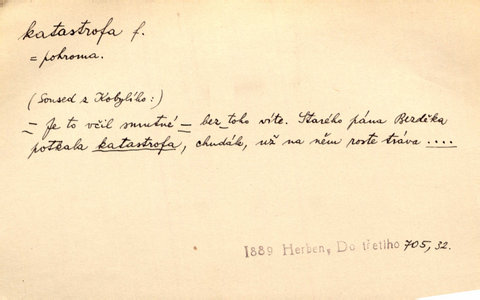 katastrofa f.
= pohroma.
(Soused z Kobylího:)
= Je to včil smutné = bez toho víte. Starého pána Bezděka
potkala katastrofa, chudák, už na něm roste tráva ....
1889 Herben, Do třetího 705, 32.